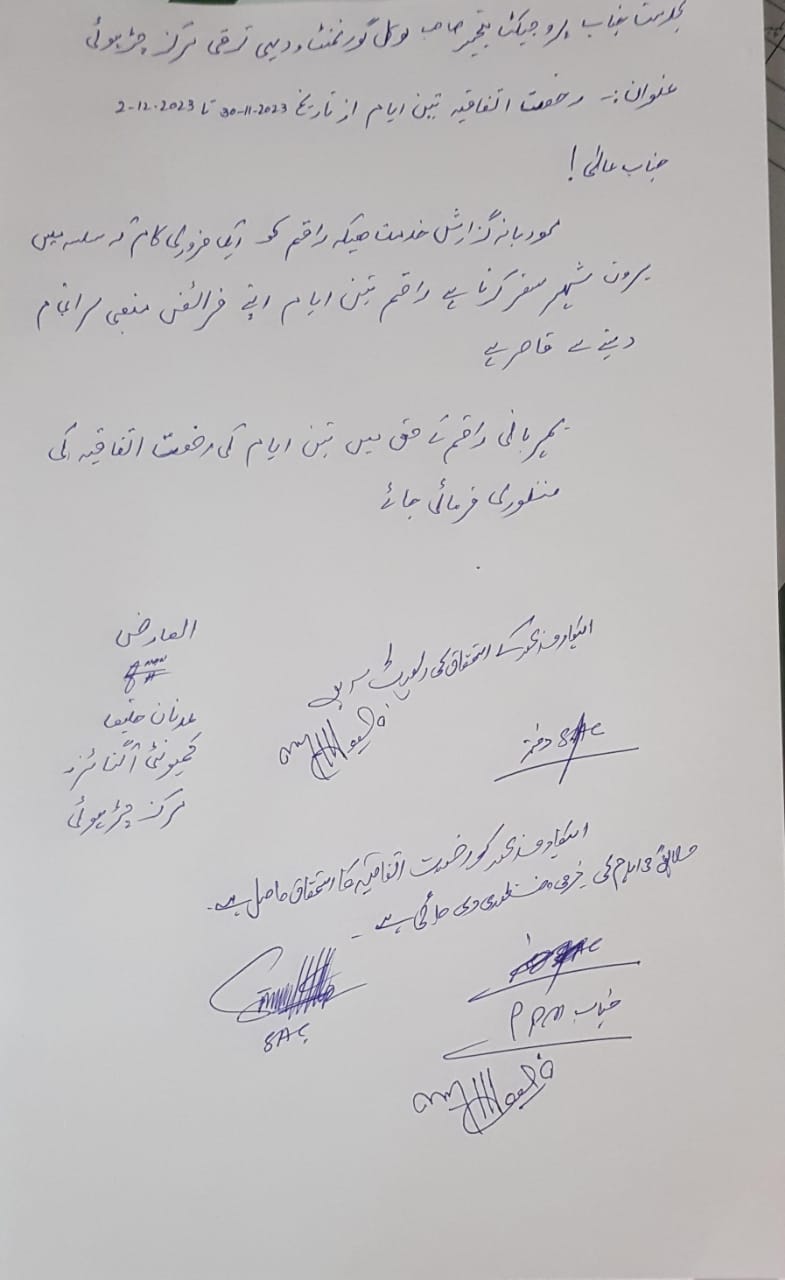 بخدمت جناب پروجیکٹ مینیجر صاحب لوکل گورنمنٹ و دیہی ترقی مرکز چڑہوئی
عنوان :- رخصت اتفاقیہ تین ایام از تاریخ 30-11-2023 تا 2-12-2023
جناب عالی!
مودبانہ گزارش خدمت ہیکہ راقم کو ایک ضروری کام کے سلسلہ میں
بیرون شہر سفر کرنا ہے راقم تین ایام اپنے فرائض منصبی سرانجام
دینے سے قاصر ہے
بمہربانی راقم کے حق میں تین ایام کی رخصت اتفاقیہ کی
منظوری فرمائی جائے
العارض
عدنان حنیف
کمیونٹی آرگنائزر
مرکز چڑہوئی
اہلکار مذکور کے استحقاق کی رپورٹ
دفتر SAC
اہلکار مذکور کو رخصت اتفاقیہ کا استحقاق حاصل ہے۔
ایام کی منظوری دی جاتی ہے۔
SAC
جناب PM